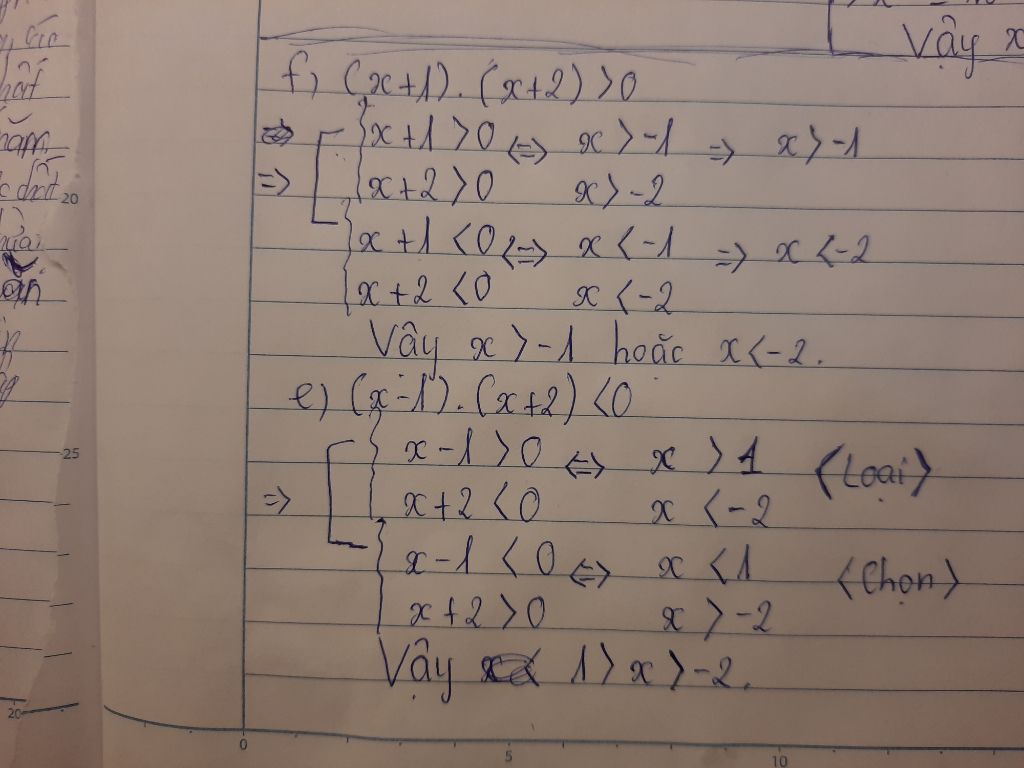 Vậy x
f) (x+1).(x+2)>0
x+1>0 <=> x>-1 => x>-1
=> x+2>0 x>-2
x+1<0 <=> x<-1 => x<-2
x+2<0 x<-2
Vậy x>-1 hoặc x<-2.
e) (x-1).(x+2)<0
x-1>0 <=> x>1 <Loại>
=> x+2<0 x<-2
x-1<0 <=> x<1 <Chọn>
x+2>0 x>-2
Vậy 1>x>-2.
20
25
20
0 5 10